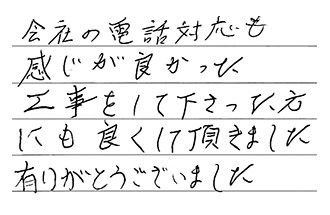 会社の電話対応も
感じが良かった
工事をして下さった方
にも良くして頂きました
有りがとうございました